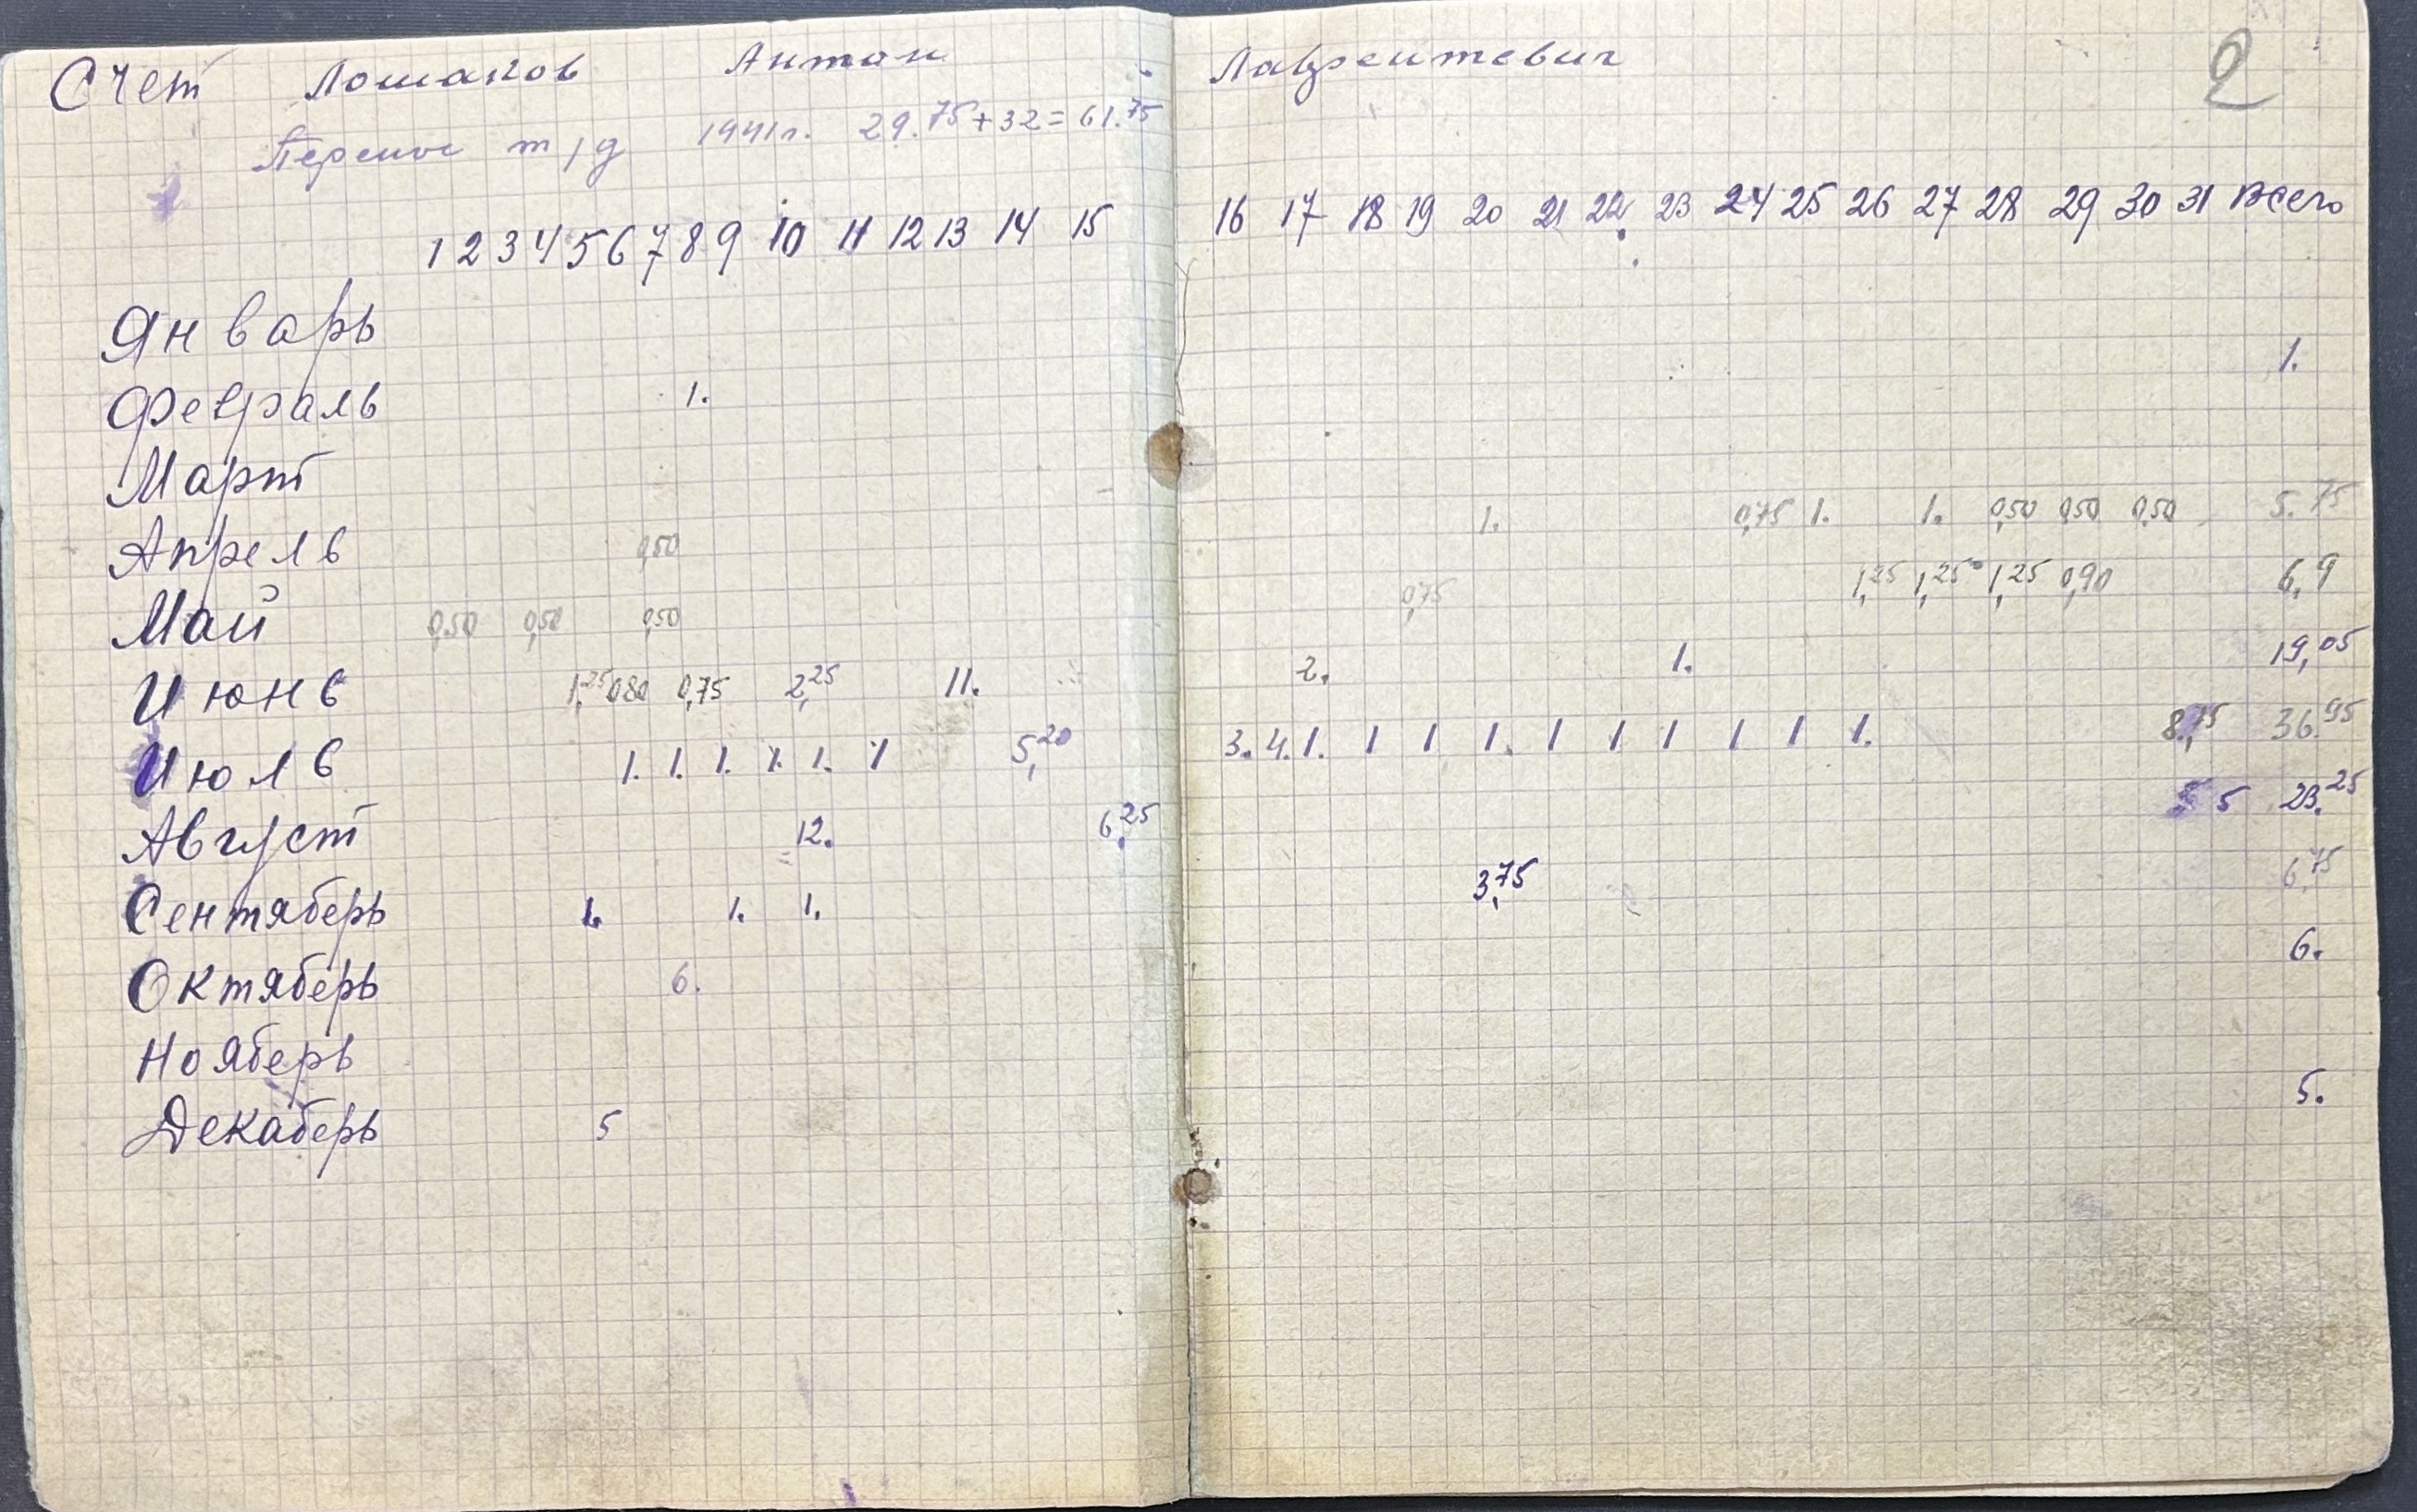 Счет Лошаков Антон Лаврентевич 2
Перенос т/д 1941г. 29.75+32=61.75
1 2 3 4 5 6 7 8 9 10 11 12 13 14 15 16 17 18 19 20 21 22 23 24 25 26 27 28 29 30 31 Всего
Январь
Февраль 1. 1.
Март
Апрель 0,50 1. 0,75 1. 1. 0,50 0,50 0,50 5.75
Май 0,50 0,50 0,50 0,75 1,25 1,25 1,25 0,90 6,9
Июнь 1,25 0,80 0,75 2,25 11. 2. 1. 19,05
Июль 1. 1. 1. 1. 1. 1 5,20 3. 4. 1. 1 1 1. 1 1 1 1 1 1. 8,75 36.95
Август 12. 6,25 5 23.25
Сентяберь 1. 1. 1. 3,75 6,75
Октяберь 6. 6.
Нояберь
Декаберь 5 5.